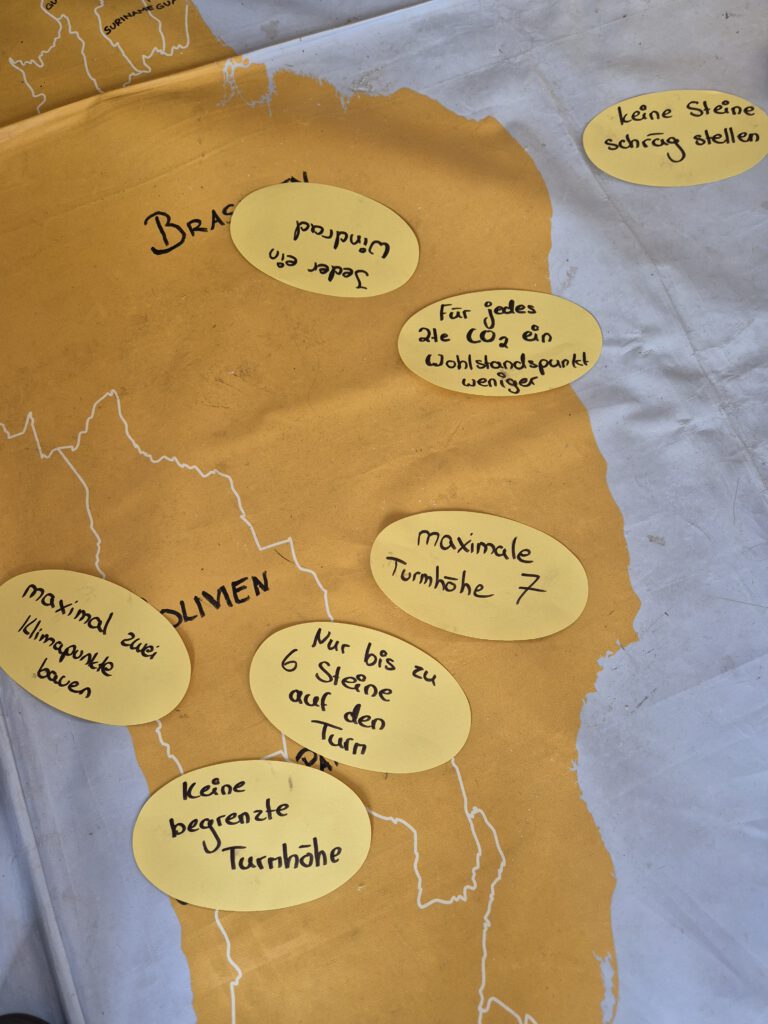 SURINAME
keine Steine
schräg stellen
BRAS
Jeder ein
Windrad
Für jedes
2te CO₂ ein
Wohlstandspunkt
weniger
maximale
Turmhöhe 7
OLIVIEN
maximal zwei
Klimapunkte
bauen
Nur bis zu
6 Steine
auf den
Turm
Keine
begrenzte
Turmhöhe